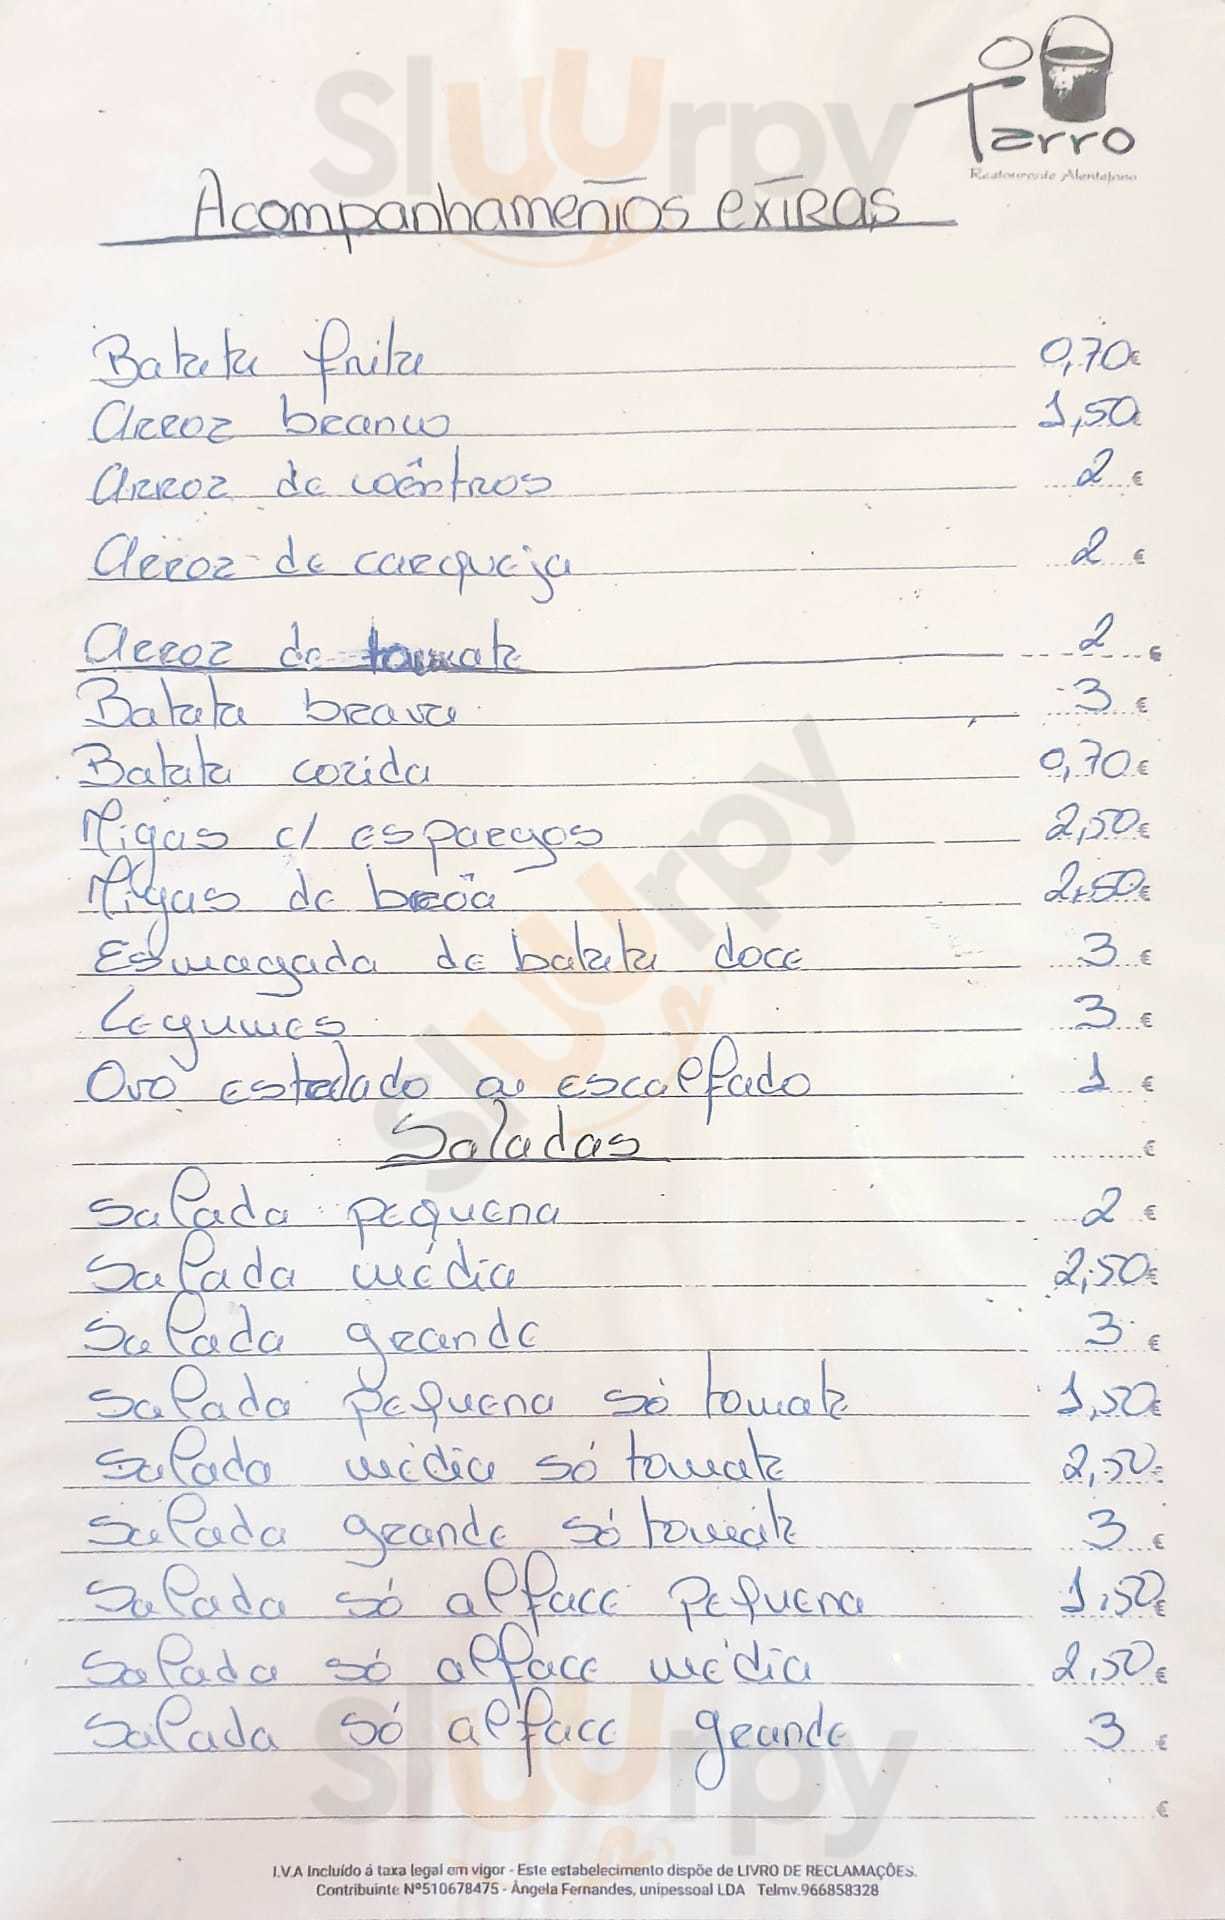 O Tarro
Restaurante Alentejano
Acompanhamentos extras
Batata frita 0,70€
Arroz branco 1,50
Arroz de coêntros 2 €
Arroz de carqueja 2 €
Arroz de tomate 2 €
Batata brava 3 €
Batata cozida 0,70€
Migas c/ espargos 2,50€
Migas de broa 2,50€
Esmagada de batata doce 3 €
Legumes 3 €
Ovo estrelado ou escalfado 1 €
Saladas €
Salada pequena 2 €
Salada média 2,50€
Salada grande 3 €
Salada pequena só tomate 1,50€
Salada média só tomate 2,50€
Salada grande só tomate 3 €
Salada só alface pequena 1,50€
Salada só alface média 2,50€
Salada só alface grande 3 €
€
I.V.A Incluído á taxa legal em vigor - Este estabelecimento dispõe de LIVRO DE RECLAMAÇÕES.
Contribuinte Nº510678475 - Ângela Fernandes, unipessoal LDA Telmv.966858328
Sluurpy
Sluurpy
Sluurpy